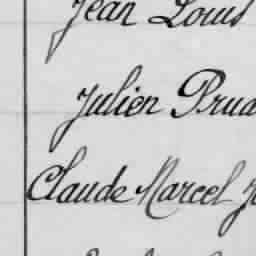 Jean Louis
Julien Prud
Claude Marcel